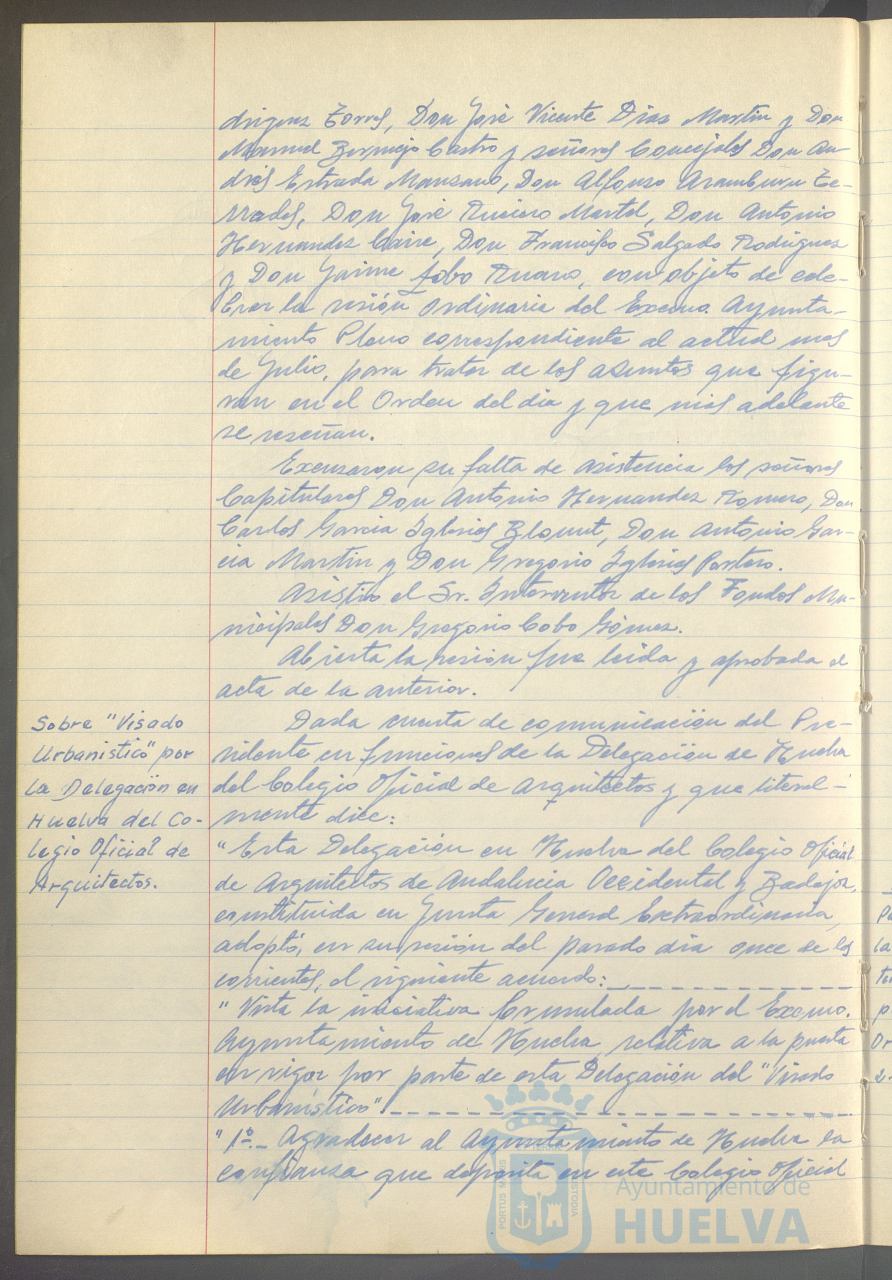 driguez Torres, Don José Vicente Diaz Martin y Don
Manuel Bermejo Castro y señores Concejales Don An-
drés Estrada Manzano, Don Alfonso Aramburu Te-
rrades, Don José Ruciero Martel, Don Antonio
Hernandez Caire, Don Francisco Salgado Rodriguez
y Don Jaime Lobo Ruano, con objeto de cele-
brar la sesión Ordinaria del Excmo. Ayunta-
miento Pleno correspondiente al actual mes
de Julio, para tratar de los asuntos que figu-
ran en el Orden del dia y que más adelante
se reseñan.
Excusaron su falta de asistencia los señores
Capitulares Don Antonio Hernandez Romero, Don
Carlos Garcia Iglesias Blount, Don Antonio Gar-
cia Martin y Don Gregorio Iglesias Portero.
Asistio el Sr. Interventor de los Fondos Mu-
nicipales Don Gregorio Cobo Gómez.
Abierta la sesión fue leida y aprobada el
acta de la anterior.
Sobre "Visado
Urbanistico" por
la Delegación en
Huelva del Co-
legio Oficial de
Arquitectos.
Dada cuenta de comunicación del Pre-
sidente en funciones de la Delegación de Huelva
del Colegio Oficial de Arquitectos y que literal-
mente dice:
"Esta Delegación en Huelva del Colegio Oficial
de Arquitectos de Andalucia Occidental y Badajoz,
constituida en Junta General Extraordinaria,
adoptó, en su sesión del pasado dia once de los
corrientes, el siguiente acuerdo:
"Vista la iniciativa formulada por el Excmo.
Ayuntamiento de Huelva relativa a la puesta
en vigor por parte de esta Delegación del "Visado
Urbanistico".
"1º.- Agradecer al Ayuntamiento de Huelva la
confianza que deposita en este Colegio Oficial
PORTUS
CUSTODIA
Ayuntamiento de
HUELVA